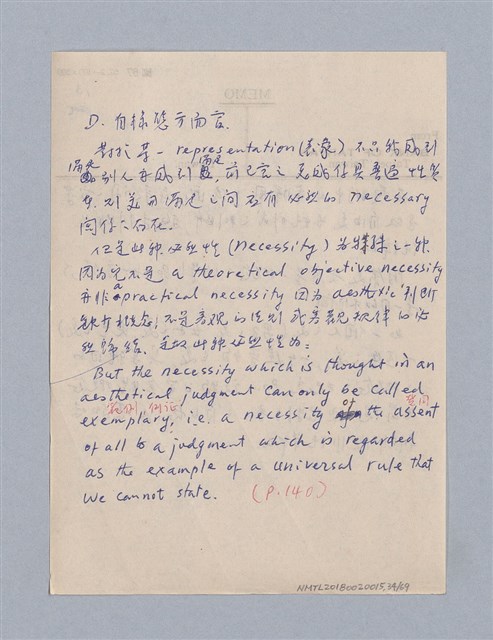 D. 自樣態方面言.
對於某一 representation (表象) 不只能感到
滿足
別人亦感到滿足, 前已言之, 美的
則美與滿足之間必有必然的 necessary
關係之存在.
但是此種必然性 (necessity) 為特殊之一種
因為它不是 a theoretical objective necessity
亦非 a practical necessity 因為 aesthetic 判斷
缺乏概念, 不是客觀的法則或客觀規律的必
然歸結. 是故此種必然性為:
But the necessity which is thought in an
aesthetical judgment can only be called
範例, 例証 贊同
exemplary, i.e. a necessity of the assent
of all to a judgment which is regarded
as the example of a universal rule that
we cannot state. (P.140)
NMTL20180020015,34/69
MEMO